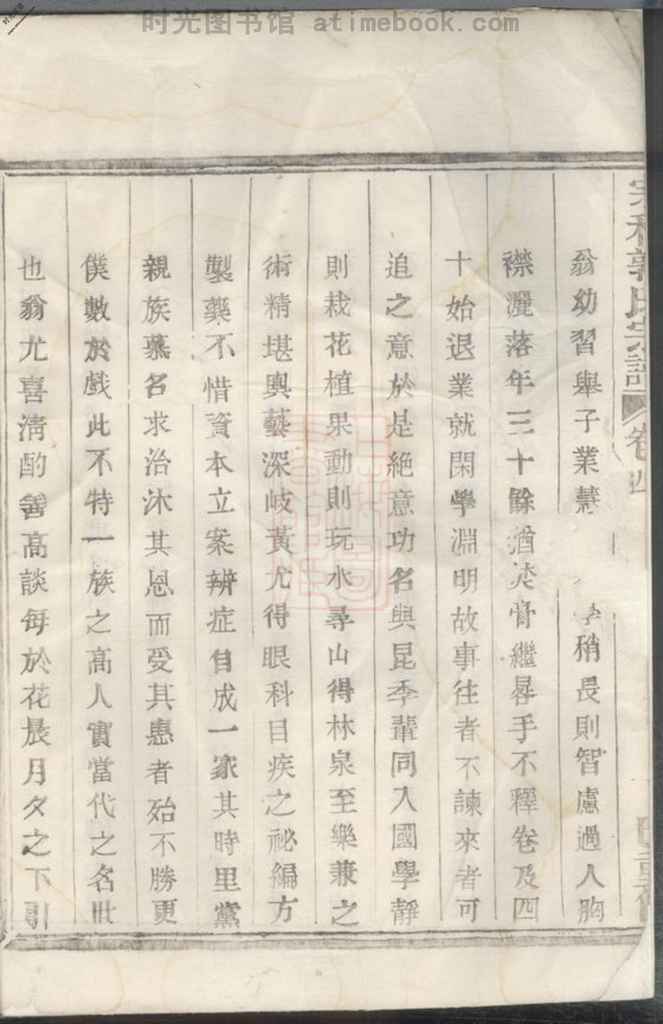 时光图书馆 atimebook.com
郭氏宗譜 卷
翁幼習舉子業慧 稍長則智慮過人胸
襟灑落年三十餘猶焚膏繼晷手不釋卷及四
十始退業就閑學淵明故事往者不諫來者可
追之意於是絶意功名與昆季輩同入國學靜
則栽花植果動則玩水尋山得林泉至樂兼之
術精堪輿藝深岐黃尤得眼科目疾之祕編方
製藥不惜資本立案辨症自成一家其時里黨
親族慕名求治沐其恩而受其惠者殆不勝更
僕數於戲此不特一族之高人實當代之名世
也翁尤喜清酌善高談每於花晨月夕之下引